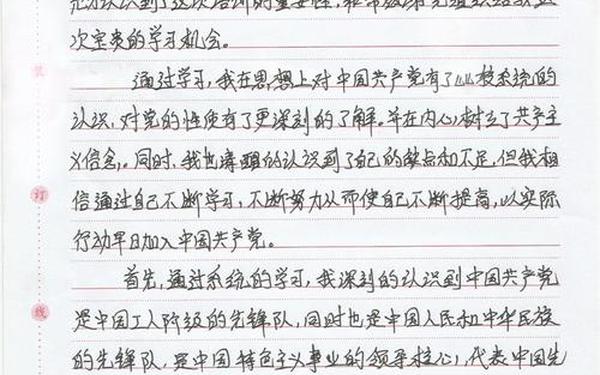 充分认识到了这次培训的重要性，和
次宝贵的学习机会。
通过学习，我在思想上对中国共产党有了比较系统的
认识，对党的性质有了更深刻的了解。并在内心树立了共产主
义信念。同时，我也清醒的认识到了自己的缺点和不足，但我相
信通过自己不断学习，不断努力从而使自己不断提高，以实际
行动早日加入中国共产党。
首先，通过系统的学习，我深刻的认识到中国共产党
是中国工人阶级的先锋队，同时也是中国人民和中华民族
的先锋队，是中国特色主义事业的领导核心，代表中国先
装
订
线